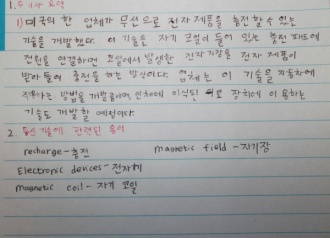 1. 요약
1) 미국의 한 업체가 무선으로 전자제품을 충전할 수 있는
기술을 개발했다. 이 기술은 자기 코일이 들어 있는 충전 패드에
전원을 연결하면 코일에서 발생한 전자기장을 전자 제품이
받아들여 충전을 하는 방식이다. 업체는 이 기술을 자동차에
방법을 개발 인체에 이식된 장치에 이용하는
기술도 개발할 예정이다.
2. 관련된 용어
recharge - 충전 magnetic field - 자기장
Electronic devices - 전자기기
magnetic coil - 자기 코일